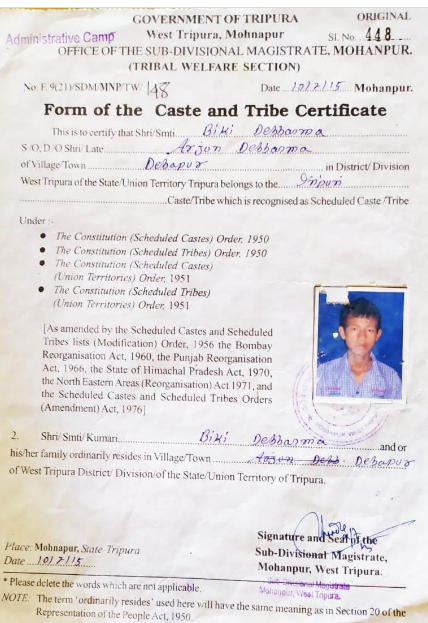 GOVERNMENT OF TRIPURA ORIGINAL
Administrative Camp West Tripura, Mohnapur Sl. No. 448
OFFICE OF THE SUB-DIVISIONAL MAGISTRATE, MOHANPUR.
(TRIBAL WELFARE SECTION)
No. F. 9(21)/SDM/MNP/TW/ 148 Date 10/7/15 Mohanpur.
Form of the Caste and Tribe Certificate
This is to certify that Shri/Smti. Biki Debbarma
S/O, D/O Shri/ Late Arjun Debbarma
of Village/Town Debapur in District/ Division
West Tripura of the State/Union Territory Tripura belongs to the Tripuri
Caste/Tribe which is recognised as Scheduled Caste /Tribe
Under :-
• The Constitution (Scheduled Castes) Order, 1950
• The Constitution (Scheduled Tribes) Order, 1950
• The Constitution (Scheduled Castes)
(Union Territories) Order, 1951
• The Constitution (Scheduled Tribes)
(Union Territories) Order, 1951
[As amended by the Scheduled Castes and Scheduled
Tribes lists (Modification) Order, 1956 the Bombay
Reorganisation Act, 1960, the Punjab Reorganisation
Act, 1966, the State of Himachal Pradesh Act, 1970,
the North Eastern Areas (Reorganisation) Act 1971, and
the Scheduled Castes and Scheduled Tribes Orders
(Amendment) Act, 1976]
2. Shri/ Smti/ Kumari Biki Debbarma and or
his/her family ordinarily resides in Village/Town Debapur
of West Tripura District/ Division/of the State/Union Territory of Tripura.
Signature and Seal of the
Place: Mohnapur, State Tripura Sub-Divisional Magistrate,
Date 10/7/15 Mohanpur, West Tripura.
Sub-Divisional Magistrate
Mohanpur, West Tripura.
* Please delete the words which are not applicable.
NOTE: The term 'ordinarily resides' used here will have the same meaning as in Section 20 of the
Representation of the People Act, 1950.